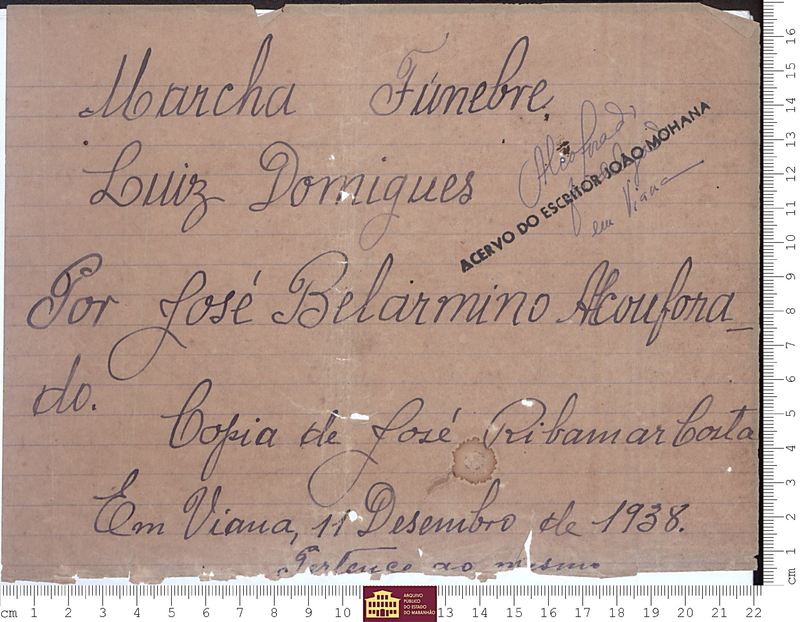 Marcha Fúnebre
Luiz Domigues
Alcoforado,
em Viana
ACERVO DO ESCRITOR JOÃO MOHANA
Por José Belarmino Alcoufora_
do.
Copia de José Ribamar Costa
Em Viana, 11 Desembro de 1938.
Pertence ao mesmo
cm 1 2 3 4 5 6 7 8 9 10 13 14 15 16 17 18 19 20 21 22
ARQUIVO
PÚBLICO
DO ESTADO
DO MARANHÃO
16
15
14
13
12
11
10
9
8
7
6
5
4
3
2
1
cm